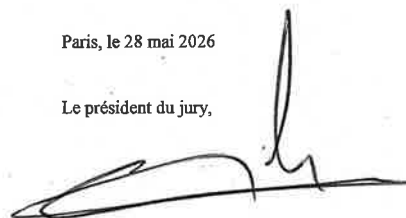 Paris, le 28 mai 2026
Le président du jury,